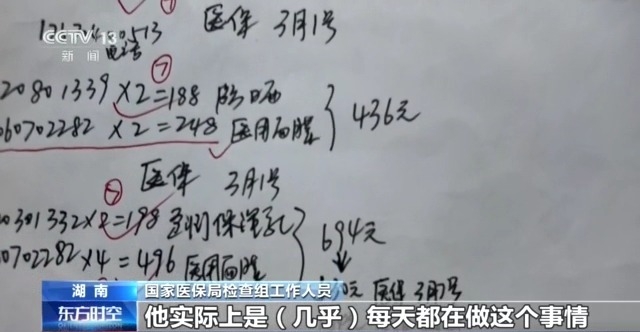 CCTV 13
新闻
医保 3月1号
20801339 ×2=188
060702282 ×2=248 医用面膜
436元
医保 3月1号
0301332×2=198
0702282×4=496 医用面膜
694元
医保 3月1号
湖南
国家医保局检查组工作人员
东方时空
他实际上是（几乎）每天都在做这个事情